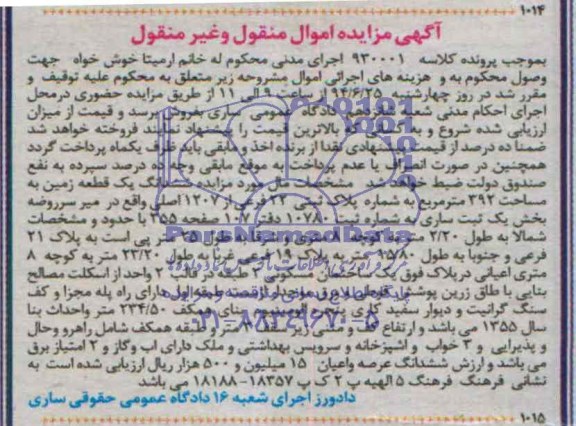 ۱۰۱۴
آگهی مزایده اموال منقول وغیر منقول
بموجب پرونده کلاسه ۹۳۰۰۰۱ اجرای مدنی محکوم له خانم ارمیتا خوش خواه جهت
وصول محکوم به و هزینه های اجرائی اموال مشروحه زیر متعلق به محکوم علیه توقیف و
مقرر شد در روز چهارشنبه ۹۴/۶/۲۵ از ساعت ۹ الی ۱۱ از طریق مزایده حضوری درمحل
اجرای احکام مدنی شعبه دادگاه عمومی ساری بفروش برسد و قیمت از میزان
ارزیابی شده شروع و به کسانیکه بالاترین قیمت را پیشنهاد نمایند فروخته خواهد شد
ضمنا ده درصد از قیمت پیشنهادی نقدا از برنده اخذ و مابقی باید ظرف یکماه پرداخت گردد
همچنین در صورت انصراف یا عدم پرداخت به موقع مابقی وجه ده درصد سپرده به نفع
صندوق دولت ضبط خواهد شد مشخصات مال مورد مزایده ششدانگ یک قطعه زمین به
مساحت ۳۹۲ مترمربع به شماره پلاک ثبتی ۲۲ فرعی از ۱۲۰۷ اصلی واقع در میر سرروضه
بخش یک ثبت ساری به شماره ثبت ۱۰۷۸۰ دفتر ۱۰۷ صفحه ۳۵۵ با حدود و مشخصات
شمالا به طول ۲/۲۰ متر به کوچه متری و شرقا به طول متر پی است به پلاک ۲۱
فرعی و جنوبا به طول ۱۵/۸۰ متر به پلاک ۱۹ فرعی غربا به طول ۲۳/۲۰ متر به کوچه ۸
متری اعیانی درپلاک فوق یک ساختمان مسکونی ۲ طبقه در قالب ۲ واحد از اسکلت مصالح
بنایی با طاق زرین پوشش طبقه اول دارای راه پله مجزا و کف
سنگ گرانیت و دیوار سفید کاری پنجره آلومینیوم بنای همکف ۲۳۴/۵۰ متر واحداث بنا
سال ۱۳۵۵ می باشد و ارتفاع کف و منفی زیر سقف متر و طبقه همکف شامل راهرو وحال
و پذیرایی و ۳ خواب و اشپزخانه و سرویس بهداشتی و ملک دارای اب وگاز و ۲ امتیاز برق
می باشد و ارزش ششدانگ عرصه واعیان ۱۵ میلیون و ۵۰۰ هزار ریال ارزیابی شده است به
نشانی فرهنگ فرهنگ ۵ الهیه پ ۲ ک پ ۱۸۳۵۷-۱۸۱۸۸ می باشد
دادورز اجرای شعبه ۱۶ دادگاه عمومی حقوقی ساری
۱۰۱۵
ParsNamadData
۰۲۱-۸۸۳۴۹۶۷۰-۵